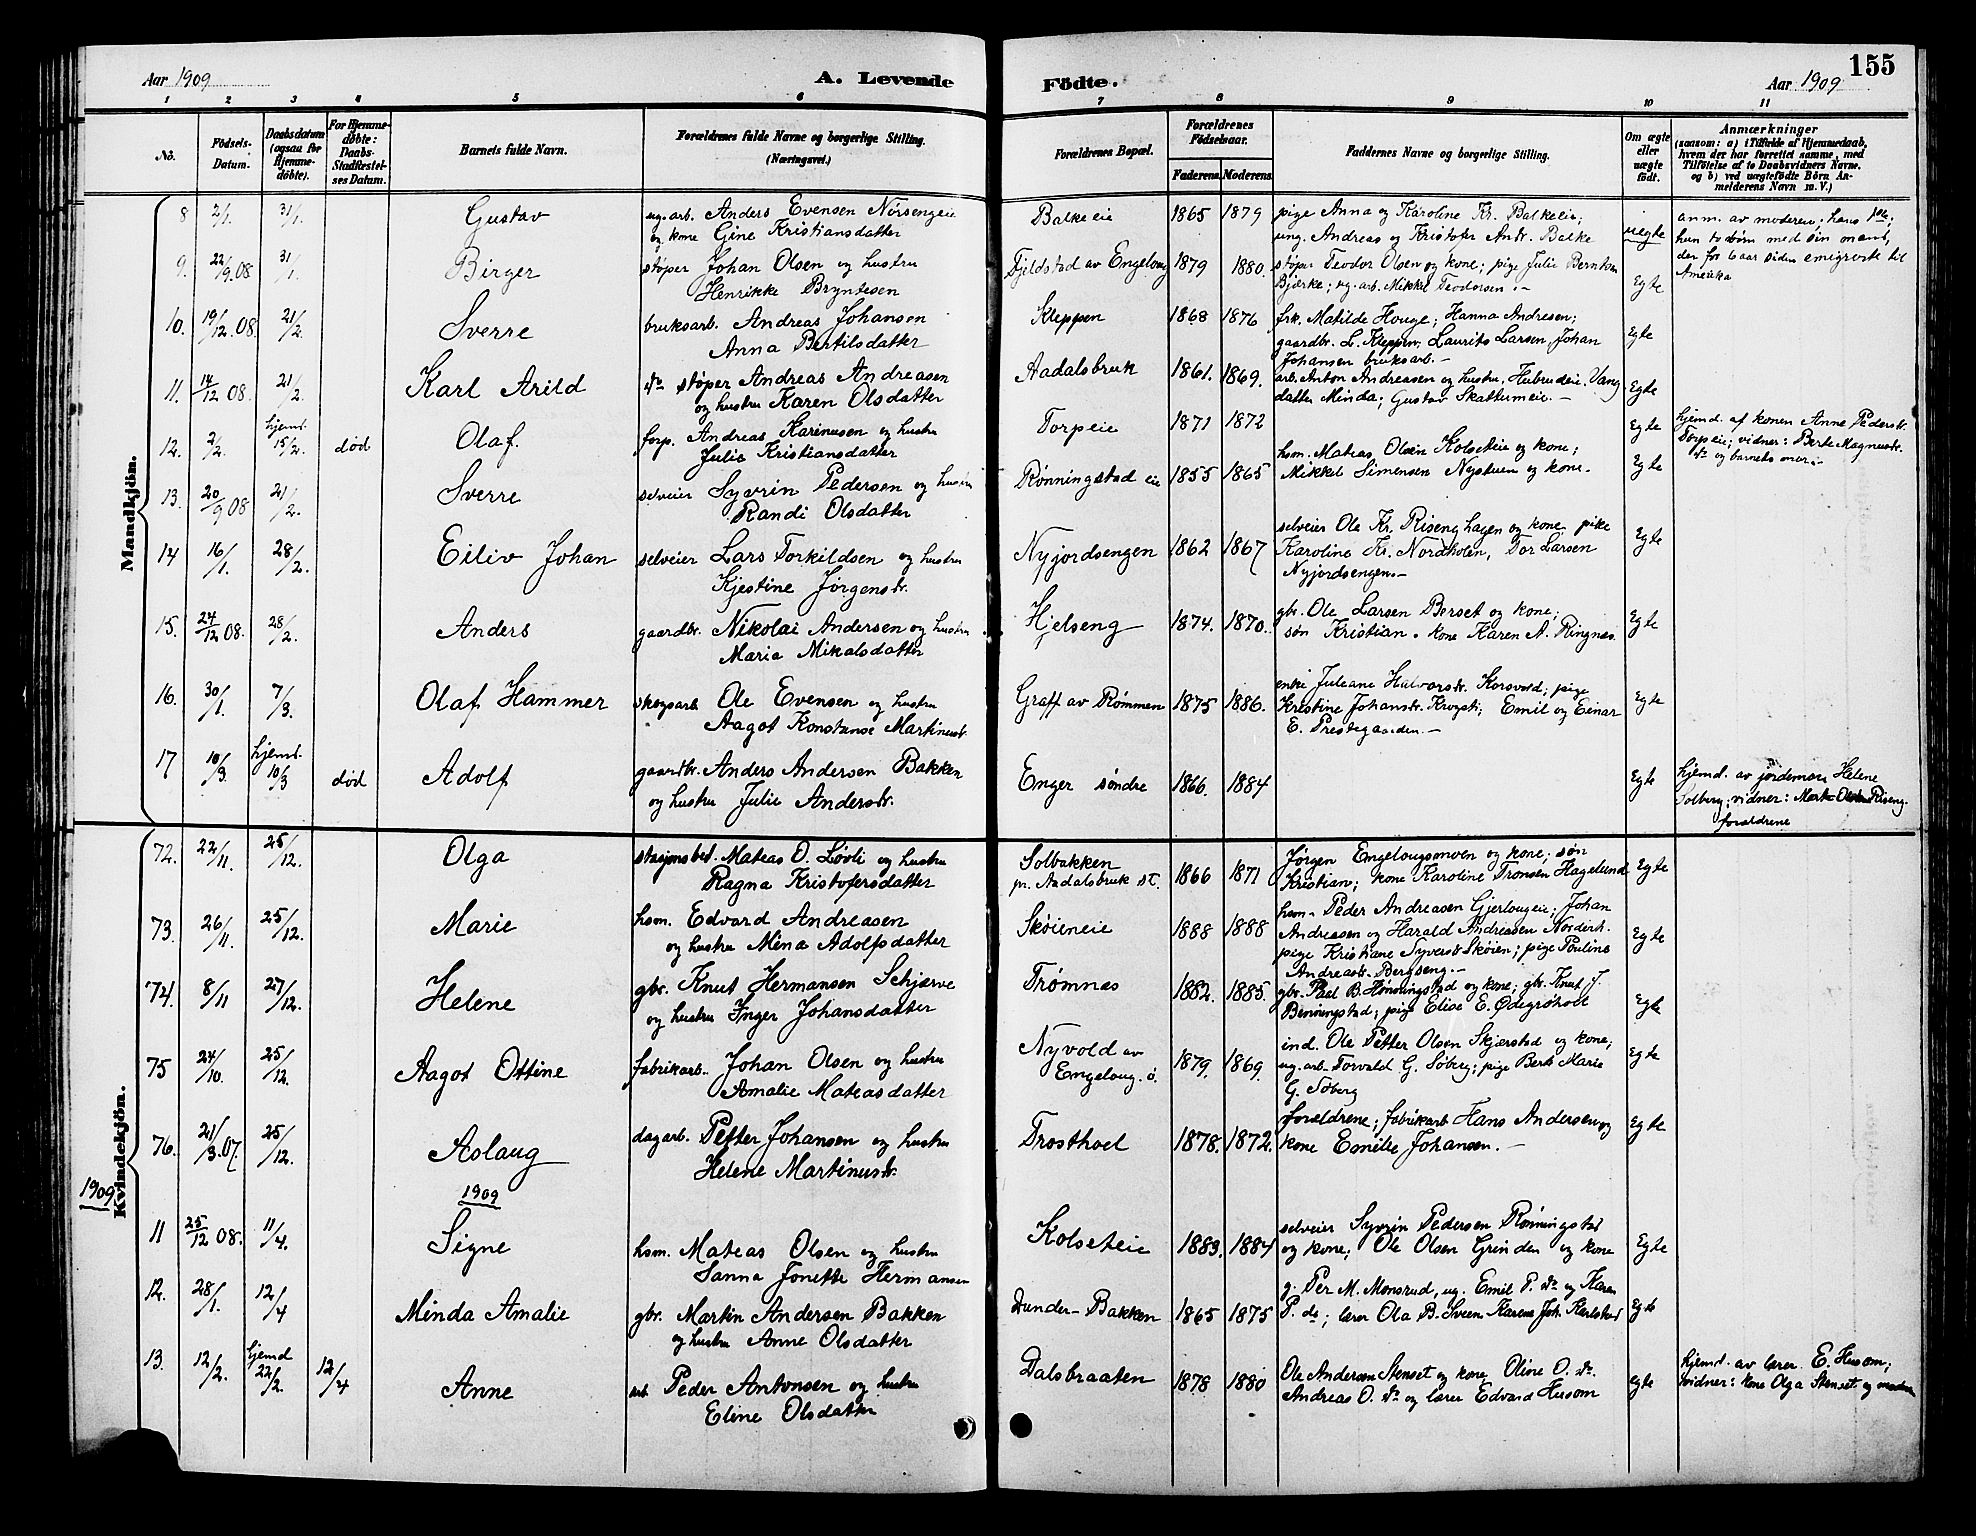 Aar 1909
A. Levende
Födte.
Aar 1909
155
1 2 3 4 5 6 7 8 9 10 11
No.
Födsels-
Datum.
Daabsdatum
(ogsaa for
Hjemme-
döbte).
For Hjemme-
döbte:
Daabs-
Stadfæstel-
ses Datum.
Barnets fulde Navn.
Forældrenes fulde Navne og borgerlige Stilling.
(Næringsvei.)
Forældrenes Bopæl.
Forældrenes
Födselsaar.
Faderens. Moderens.
Faddernes Navne og borgerlige Stilling.
Om ægte
eller
uægte
født.
Anmærkninger
(saasom: a) i Tilfælde af Hjemmedaab,
hvem der har forrettet samme, med
Tilföielse af to Daabsvidners Navne.
og b) ved uægtefödte Börn An-
melderens Navn m. V.)
Mandkjön.
8 2/1. 31/1. Gustav
ug. arb. Anders Evensen Nørsengeie
og kone Gine Kristiansdatter
Balkeeie 1865 1879
pige Anna og Karoline Kr. Balkeeie;
ung. Andreas og Kristofer Andr. Balke
uegte
anm. av moderen, hans
hun to børn med sin mand,
der for 6 aar siden emigrerte til
Amerika
9. 22/9.08 31/1. Birger
støper Johan Olsen og hustru
Henrikke Bryntesen
Fjeldstad av Engeloug 1879 1880.
støper Teodor Olsen og kone; pige Julie Berntsen
Bjærke; ug. arb. Mikkel Teodorsen.-
Egte
10. 19/12.08. 21/2. Sverre
bruksarb. Andreas Johansen
Anna Bertilsdatter
Kleppen 1868 1876
frk. Matilde Houge; Hanna Andresen;
gaardbr. L. Kleppen, Laurits Larsen, Johan
Johansen bruksarb.-
Egte
11. 14/12 08. 21/2. Karl Arild
do støper Andreas Andreasen
og hustru Karen Olsdatter
Aadalsbruk 1861. 1869.
arb. Anton Andreasen og hustru, Vang
datter Minda; Gustav Skattumeie.-
Egte
12. 2/2. hjemd. 15/2. død Olaf.
forp. Andreas Karinusen og hustru
Julie Kristiansdatter
Torpeie 1871 1872
Egte
hjemd. af konen Anne Pedersdr.
Torpeie; vidner: Berte Magnusdr.
do og barnets mor.-
13. 20/9 08 21/2. Sverre
selveier Syvrin Pedersen og hustru
Randi Olsdatter
Rønningstad eie 1855 1865
hsm. Mateas Olsen Kolseteie og kone;
Mikkel Simensen Nystuen og kone.
Egte
14 16/1. 28/2. Eiliv Johan
selveier Lars Torkildsen og hustru
Kjestine Jørgensdr.
Nyjordsengen 1862 1867
selveier Ole Kr. Risenghagen og kone pike
Karoline Kr. Nordholen, Tor Larsen
Nyjordsengen.-
Egte
15. 24/12 08. 28/2. Anders
gaardbr. Nikolai Andersen og hustru
Maria Mikalsdatter
Hjelseng 1874. 1870.
gbr. Ole Larsen Berset og kone;
søn Kristian. kone Karen A. Ringnes
Egte
16. 30/1. 7/3. Olaf Hammer
skogsarb. Ole Evensen og hustru
Aagot Konstanse Martinusdr.
Graff av Rømmen 1875 1886.
enke Juleane Halvorsdr. Korsvold; pige
Kristine Johansdr. Krogsti; Emil og Einar
E. Prestegaarden.-
Egte
17 10/3. hjemd. 10/3 død Adolf
gaardbr. Anders Andersen Bakken
og hustru Julie Andersdr.
Enger søndre 1866. 1884
Egte
hjemd. av jordemor Helene
Solberg; vidner: Riseng.
forældrene
Kvindekjön.
72. 22/11. 25/12. Olga
stasjonsbet. Mateas O. Løvli og hustru
Ragna Kristofersdatter
Solbakken
pr. Aadalsbruk st. 1866 1871
Jørgen Engelougsmoen og kone; søn
Kristian; kone Karoline Tronsen Hagelund
Egte
73. 26/11. 25/12. Marie
hsm. Edvard Andreasen
og hustru Mina Adolfsdatter
Skøieneie 1888 1888
hsm. Peder Andreasen Gjerlougeie; Johan
Andreasen og Harald Andreasen Norderh.
pige Kristiane Syversdr. Skøien; pige Pauline
Andreasdr. Bergseng.-
Egte
74. 8/11 27/12. Helene
gbr. Knut Hermansen Schjerve
og hustru Inger Johansdatter
Trømnæs 1882. 1885.
gbr. Paal B. Hønningstad og kone; gbr. Knut J.
Benningstad; pige Elise E. Ødegrøhoel
Egte
75 24/10. 25/12. Aagot Ottine
fabrikarb. Johan Olsen og hustru
Amalie Mateasdatter
Nyvold av
Engeloug. ø. 1879. 1869.
ind. Ole Petter Olsen Skjærstad og kone;
ug. arb. Torvald G. Søberg; pige Berte Marie
G. Søberg
Egte
76. 21/3.07. 25/12. Aslaug
dagarb. Petter Johansen og hustru
Helene Martinusdr.
Trosthoel 1878. 1872.
forældrene; fabrikarb Hans Andersen og
kone Emilie Johansen.-
Egte
1909
1909
11 25/12 08. 11/4. Signe
hsm. Mateas Olsen og hustru
Sanna Jonette Hermansen
Kolseteie 1883. 1884
selveier Syvrin Pedersen Rønningstad
og kone; Ole Olsen Grinden og kone
Egte
12. 28/1. 12/4 Minda Amalie
gbr. Martin Andersen Bakken
og hustru Anne Olsdatter
Dunder-Bakken 1865 1875
g. Per M. Monsrud, ug. Emil P. do og Karen
P. do; lærer Ola B. Sveen Karene Joh. Karlstad
Egte
13. 12/2. hjemd 22/2. 12/4 Anne
arb Peder Antonsen og hustru
Eline Olsdatter
Dalsbraaten 1878 1880
Ole Andersen Stenset og kone Oline O. do.
Andreas O. do og lærer Edvard Husom
egte
hjemd. av lærer E. Husom;
vidner: kone Olga Stenset og